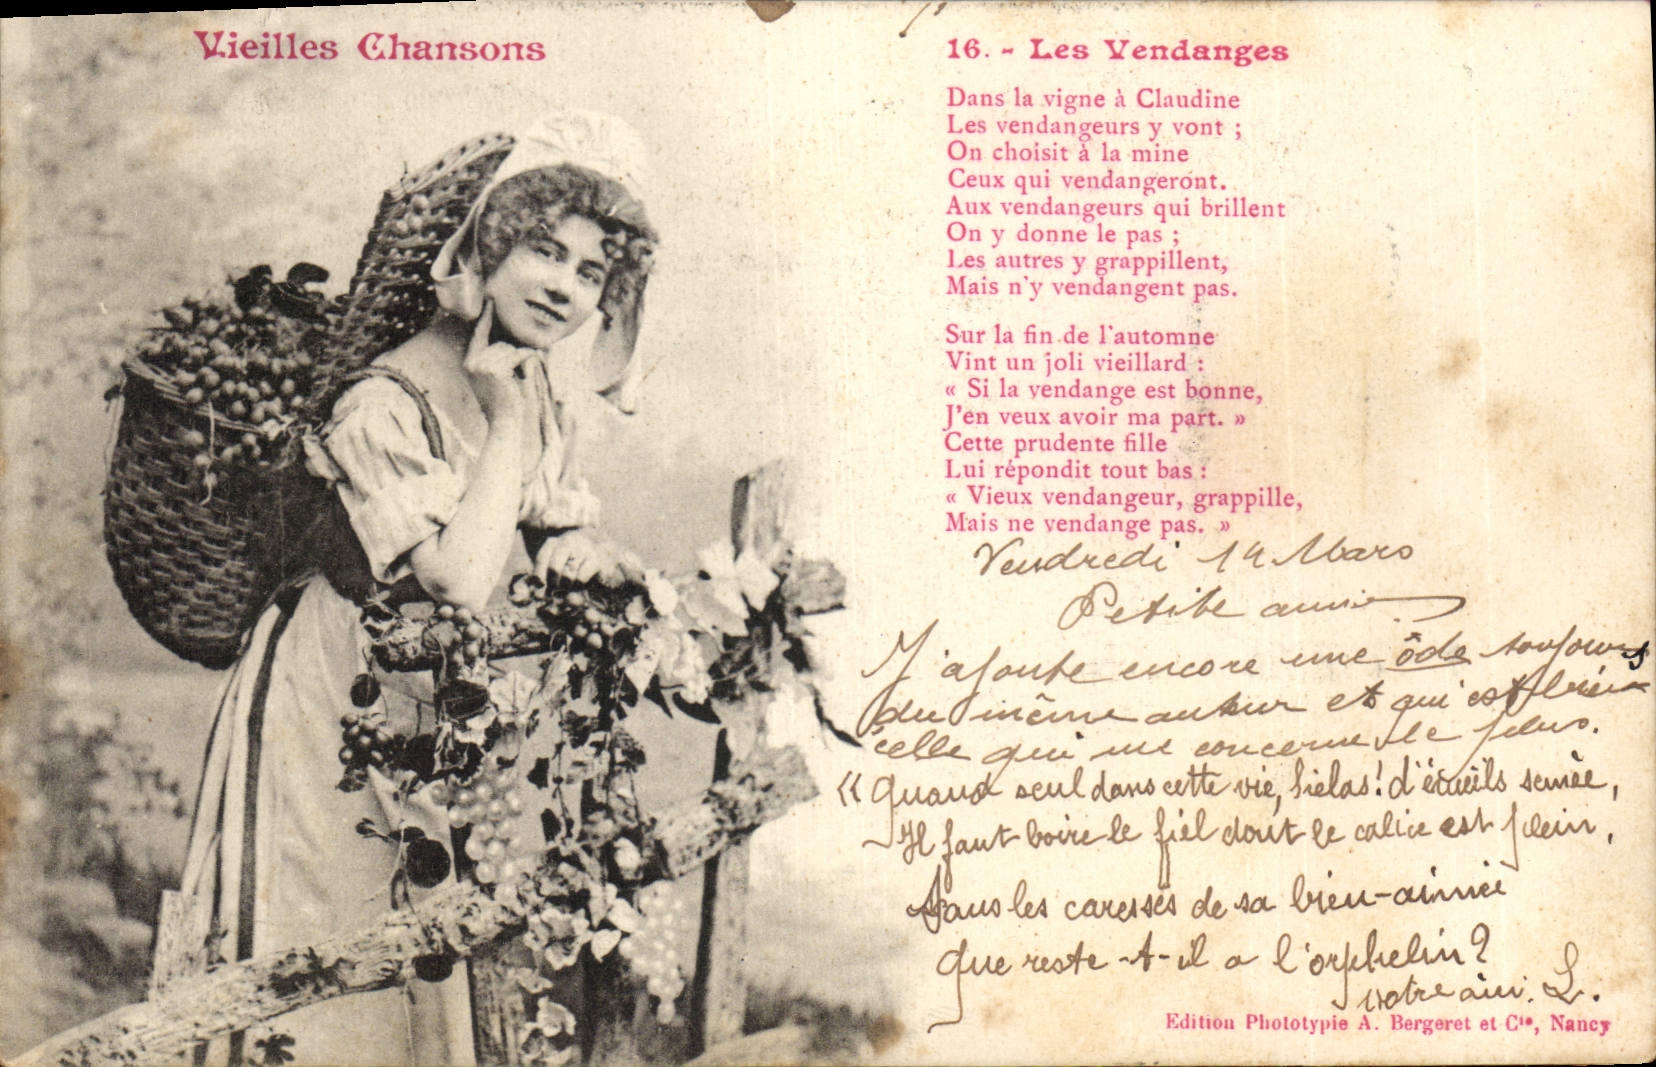 Vieilles Chansons
16. - Les Vendanges
Dans la vigne à Claudine
Les vendangeurs y vont ;
On choisit à la mine
Ceux qui vendangeront.
Aux vendangeurs qui brillent
On y donne le pas ;
Les autres y grappillent,
Mais n'y vendangent pas.
Sur la fin de l'automne
Vint un joli vieillard :
« Si la vendange est bonne,
J'en veux avoir ma part. »
Cette prudente fille
Lui répondit tout bas :
« Vieux vendangeur, grappille,
Mais ne vendange pas. »
Vendredi 14 Mars
Petite amie
J'ajoute encore une ôde toujours
du même auteur et qui est bien
celle qui me concerne le plus.
« Quand seul dans cette vie, hélas! d'écueils semée,
Il faut boire le fiel dont le calice est plein,
Sans les caresses de sa bien-aimée
Que reste-t-il a l'orphelin?
votre ami. L.
Edition Phototypie A. Bergeret et Cie, Nancy